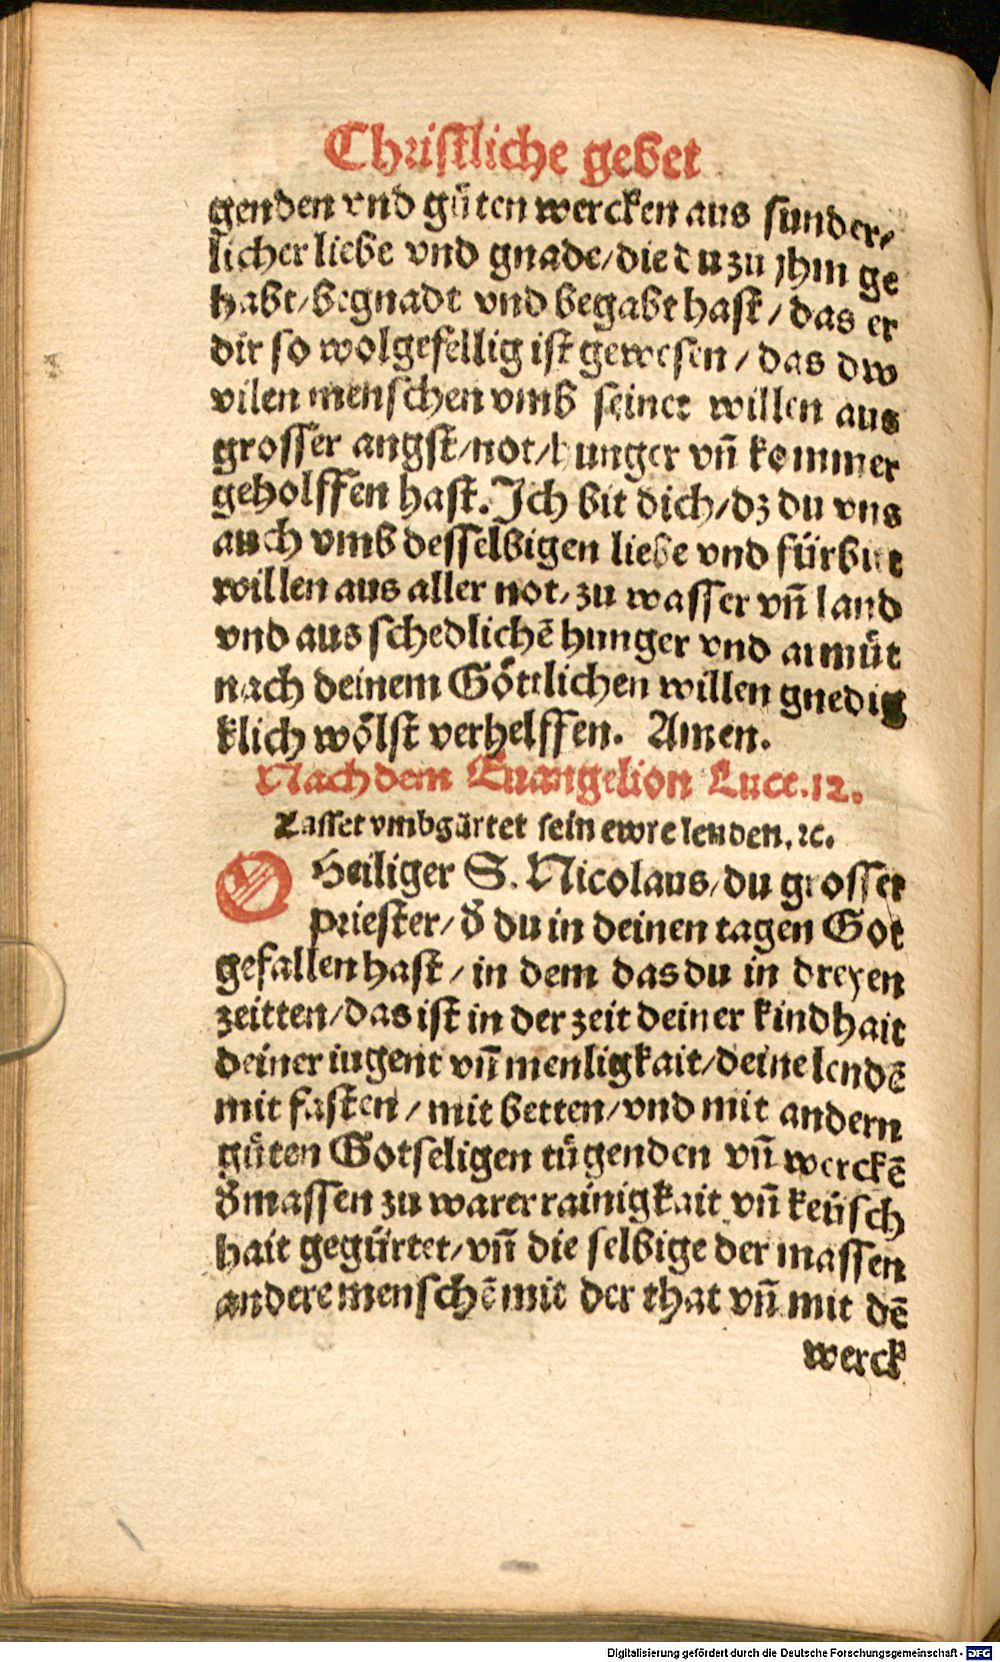 Christliche gebet
genden vnd gůten wercken aus sunder⸗
licher liebe vnd gnade/die du zu jhm ge
habt/begnadt vnd begabt hast/das er
dir so wolgefellig ist gewesen/das dw
vilen menschen vmb seinet willen aus
grosser angst/not/hunger vn̄ kommer
geholffen hast. Ich bit dich/dz du vns
auch vmb desselbigen liebe vnd fürbitt
willen aus aller not/zu wasser vn̄ land
vnd aus schedlichē hunger vnd armůt
nach deinem Göttlichen willen gnedig
klich wölst verhelffen. Amen.
Nach dem Euangelion Luce.12.
Lasset vmbgürtet sein ewre lenden.ꝛc.
O Heiliger S. Nicolaus/du grosser
priester/d̄ du in deinen tagen Got
gefallen hast/in dem das du in dreyen
zeitten/das ist in der zeit deiner kindhait
deiner iugent vn̄ menligkait/deine lendē
mit fasten/mit betten/vnd mit andern
gůten Gotseligen tůgenden vn̄ werckē
d̄massen zu warer rainigkait vn̄ keüsch
hait gegürtet/vn̄ die selbige der massen
andere menschē mit der that vn̄ mit dē
werck
Digitalisierung gefördert durch die Deutsche Forschungsgemeinschaft - DFG